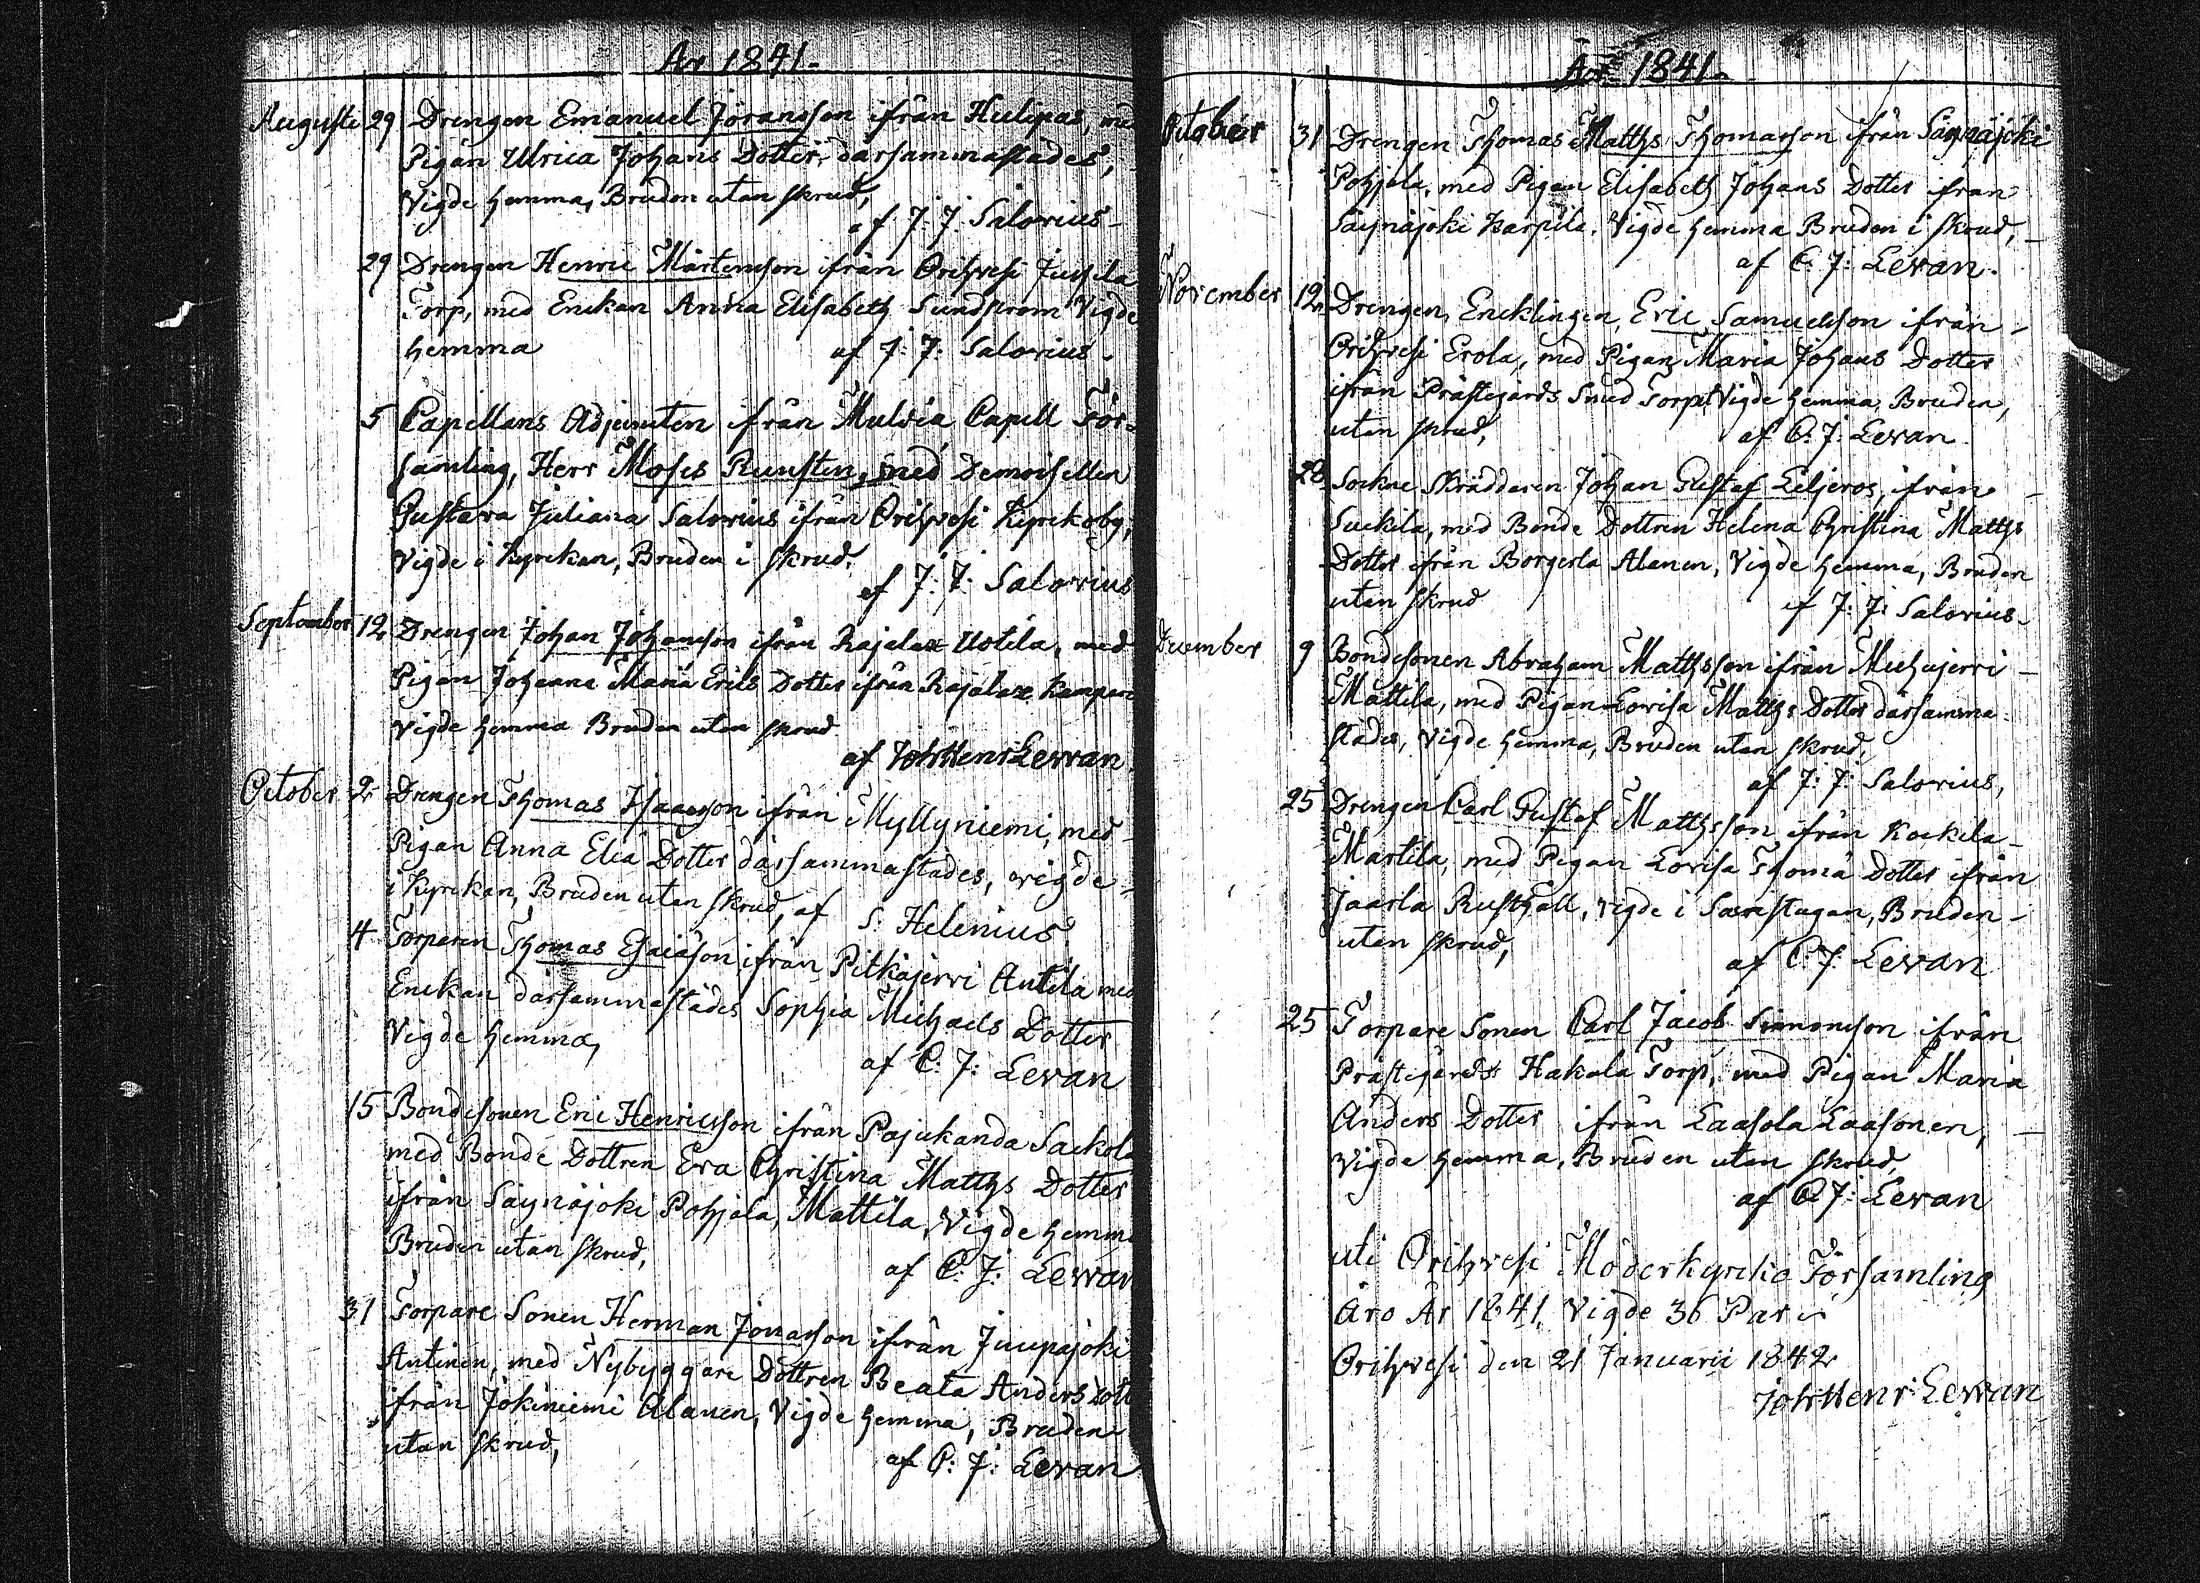 År 1841.
Augusti 29 Drengen Emanuel Jöransson ifrån Hulipas, med
Pigan Ulrica Johans Dotter, därsammastädes,
Vigde hemma, Bruden utan skrud,
af J: J: Salovius
29 Drengen Henric Mårtensson ifrån Orihvesi Jussila
Torp, med Enckan Anna Elisabeth Sundström Vigde
hemma af J: J: Salovius
5 Capellans Adjuncten ifrån Mulvia Capell För-
samling, Herr Moses Runsten, med Demoisellen
Gustava Juliana Salovius ifrån Orihvesi Kyrckoby,
Vigde i Kyrckan, Bruden i skrud.
af J: J: Salovius
September 12 Drengen Johan Johansson ifrån Rajalax Uotila, med
Pigan Johanna Maria Erics Dotter ifrån Rajalax
Vigde hemma Bruden utan skrud
af Joh Henr Levvan
October 2 Drengen Thomas Isaacsson ifrån Myllyniemi, med
Pigan Anna Elia Dotter därsammastädes, vigde
i Kyrckan, Bruden utan skrud, af S. Helenius
4 Torparen Thomas Esaiasson ifrån Pitkäjervi Antila med
Enckan därsammastädes Sophia Michaels Dotter
Vigde hemma,
af C: J: Levan
15 Bondesonen Eric Henricsson ifrån Pajukanda Sackola
med Bonde Dottren Eva Christina Matths Dotter
ifrån Säynäjoki Pohjala, Mattila, Vigde hemma
Bruden utan skrud,
af C: J: Levvan
31 Torpare Sonen Herman Jonasson ifrån Juupajoki
Antinen, med Nybyggare Dottren Beata Anders Dott
ifrån Jokiniemi Alanen, Vigde hemma, Bruden
utan skrud,
af C: J: Levan
År 1841.
October 31 Drengen Thomas Matths Thomasson ifrån Säynäjoki
Pohjola, med Pigan Elisabeth Johans Dotter ifrån
Säynäjoki Karpila. Vigde hemma Bruden i skrud,
af C: J: Levan.
November 12 Drengen, Encklingen, Eric Samuelsson ifrån
Orihvesi Erola, med Pigan Maria Johans Dotter
ifrån Prästegårds Smed Torp, Vigde hemma, Bruden,
utan skrud, af C: J: Levan
28 Sockne Skräddaren Johan Gustaf Leljeros, ifrån
Suckila, med Bonde Dottren Helena Christina Matths
Dotter ifrån Borgerla Alanen, Vigde hemma, Bruden
utan skrud af J: J: Salovius
December 9 Bondesonen Abraham Matthsson ifrån Miehujerri
Mattila, med Pigan Lovisa Matths Dotter därsamma
städes, Vigde hemma, Bruden utan skrud,
af J: J: Salovius,
25 Drengen Carl Gustaf Matthsson ifrån Kockila
Martila, med Pigan Lovisa Thoma Dotter ifrån
Jaarla Rusthåll, vigde i Sacrestugan, Bruden
utan skrud, af C: J: Levan
25 Torpare Sonen Carl Jacob Simonsson ifrån
Prästegårds Hakala Torp, med Pigan Maria
Anders Dotter ifrån Laasola Laasonen,
Vigde hemma, Bruden utan skrud,
af C: J: Levan
uti Orihvesi Moderkyrcko Församling
äro År 1841, Vigde 36 Par
Orihvesi den 21 Januarii 1842
Joh Henr Levvan